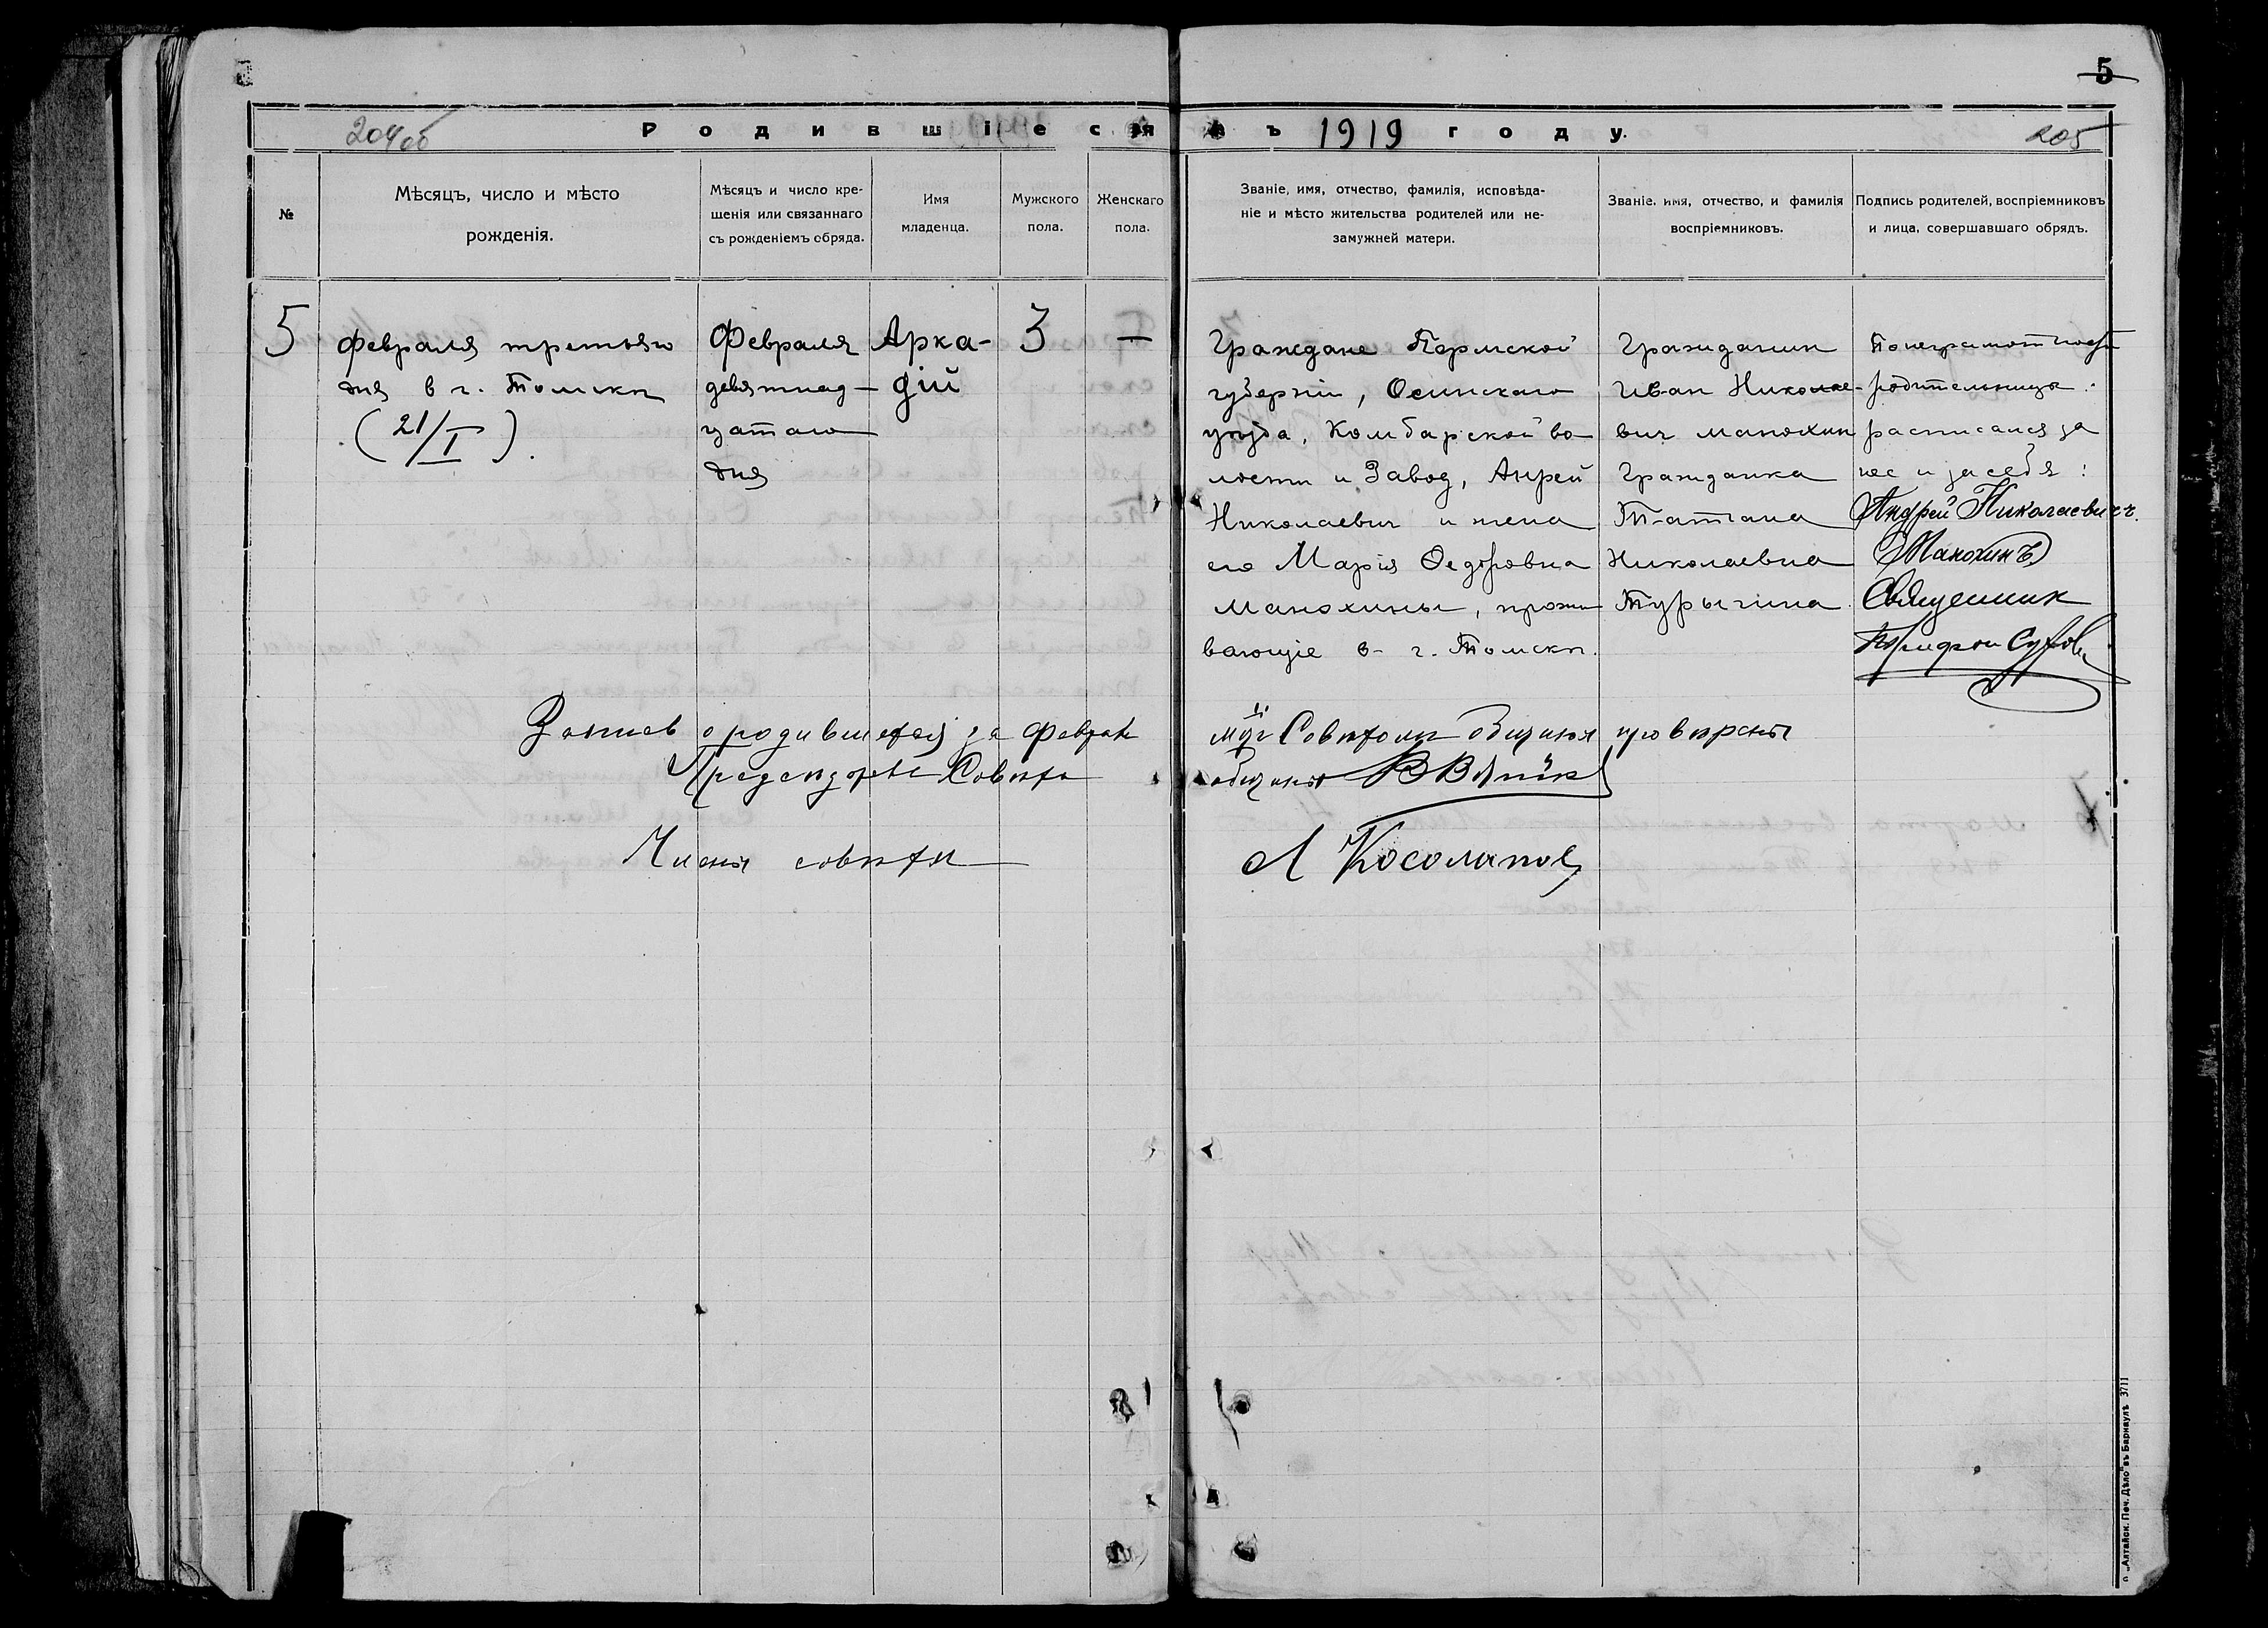 5
204об
Родившіеся въ 1919 году.
205
№
Мѣсяцъ, число и мѣсто
рожденія.
Мѣсяцъ и число кре-
щенія или связаннаго
съ рожденіемъ обряда.
Имя
младенца.
Мужского
пола.
Женскаго
пола.
Званіе, имя, отчество, фамилія, исповѣда-
ніе и мѣсто жительства родителей или не-
замужней матери.
Званіе, имя, отчество, и фамилія
воспріемниковъ.
Подпись родителей, воспріемниковъ
и лица, совершавшаго обрядъ.
5
февраля третьяго
дня в г. Томскѣ
(21/I).
Февраля
девятнад-
цатаго
дня
Арка-
дій
3
—
Граждане Пермской
губерніи, Осинскаго
уѣзда, Камбарской во
лости и Завод, Андрей
Николаевич и жена
его Марія Ѳедоровна
Манохины, прожи
вающіе в г. Томскѣ.
Гражданин
Иван Николае-
вич Манохин
Гражданка
Татіана
Николаевна
Турыгина.
По неграмотности
родительницы
расписался за
нее и за себя:
Андрей Николаевичъ.
Манохинъ
Священник
Трифон Сухов
Запись о родившехся за февраль
мц Совѣтом общины провѣрены
Председатель Совѣта
общины
Члены совѣта
А Косолапов
„Алтайск. Печ. Дѣло" въ Барнаулѣ 3711